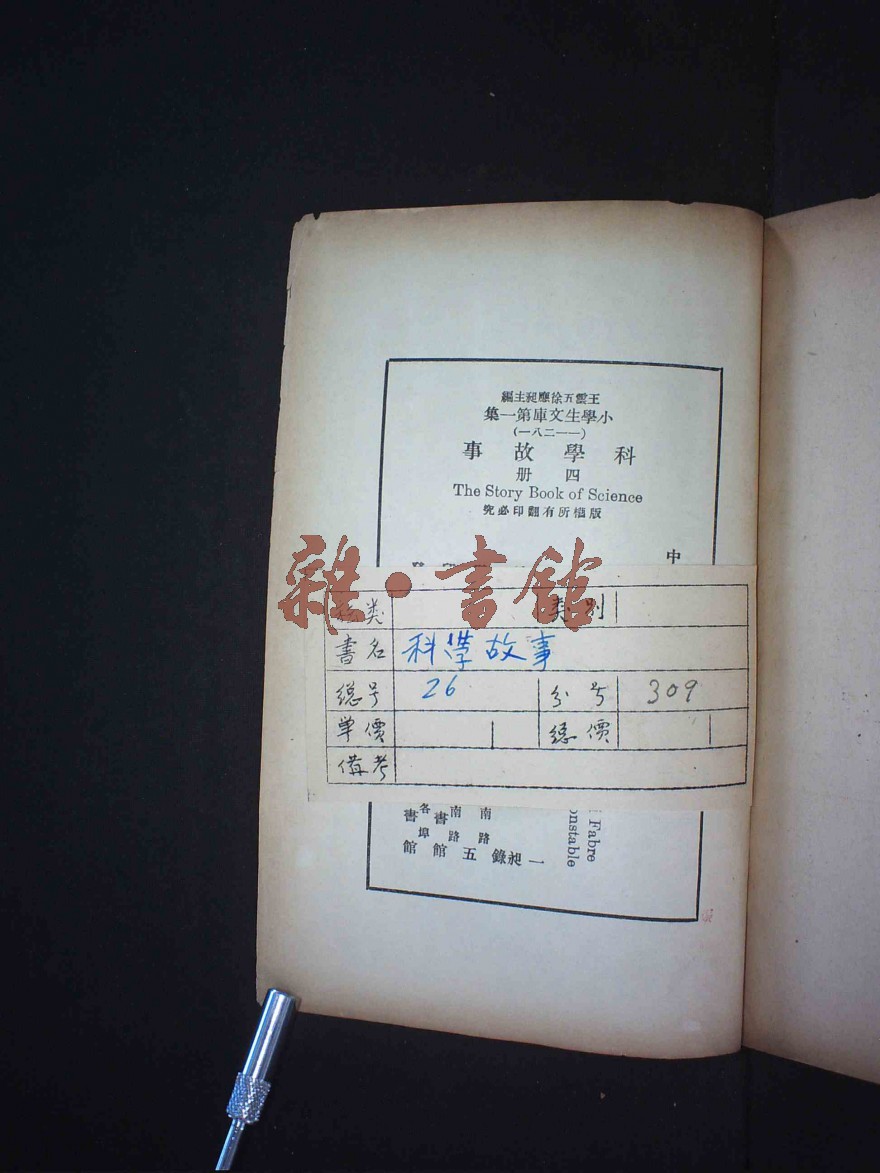 王雲五徐應昶主編
小學生文庫第一集
(一一二八一)
科學故事
四册
The Story Book of Science
版權所有翻印必究
中
雜·書館
类
类别
書名 科學故事
總号 26 分号 309
單價 總價
備考
Fabre
onstable
南路
南路
書館
各埠
書館
一
昶
錄
五